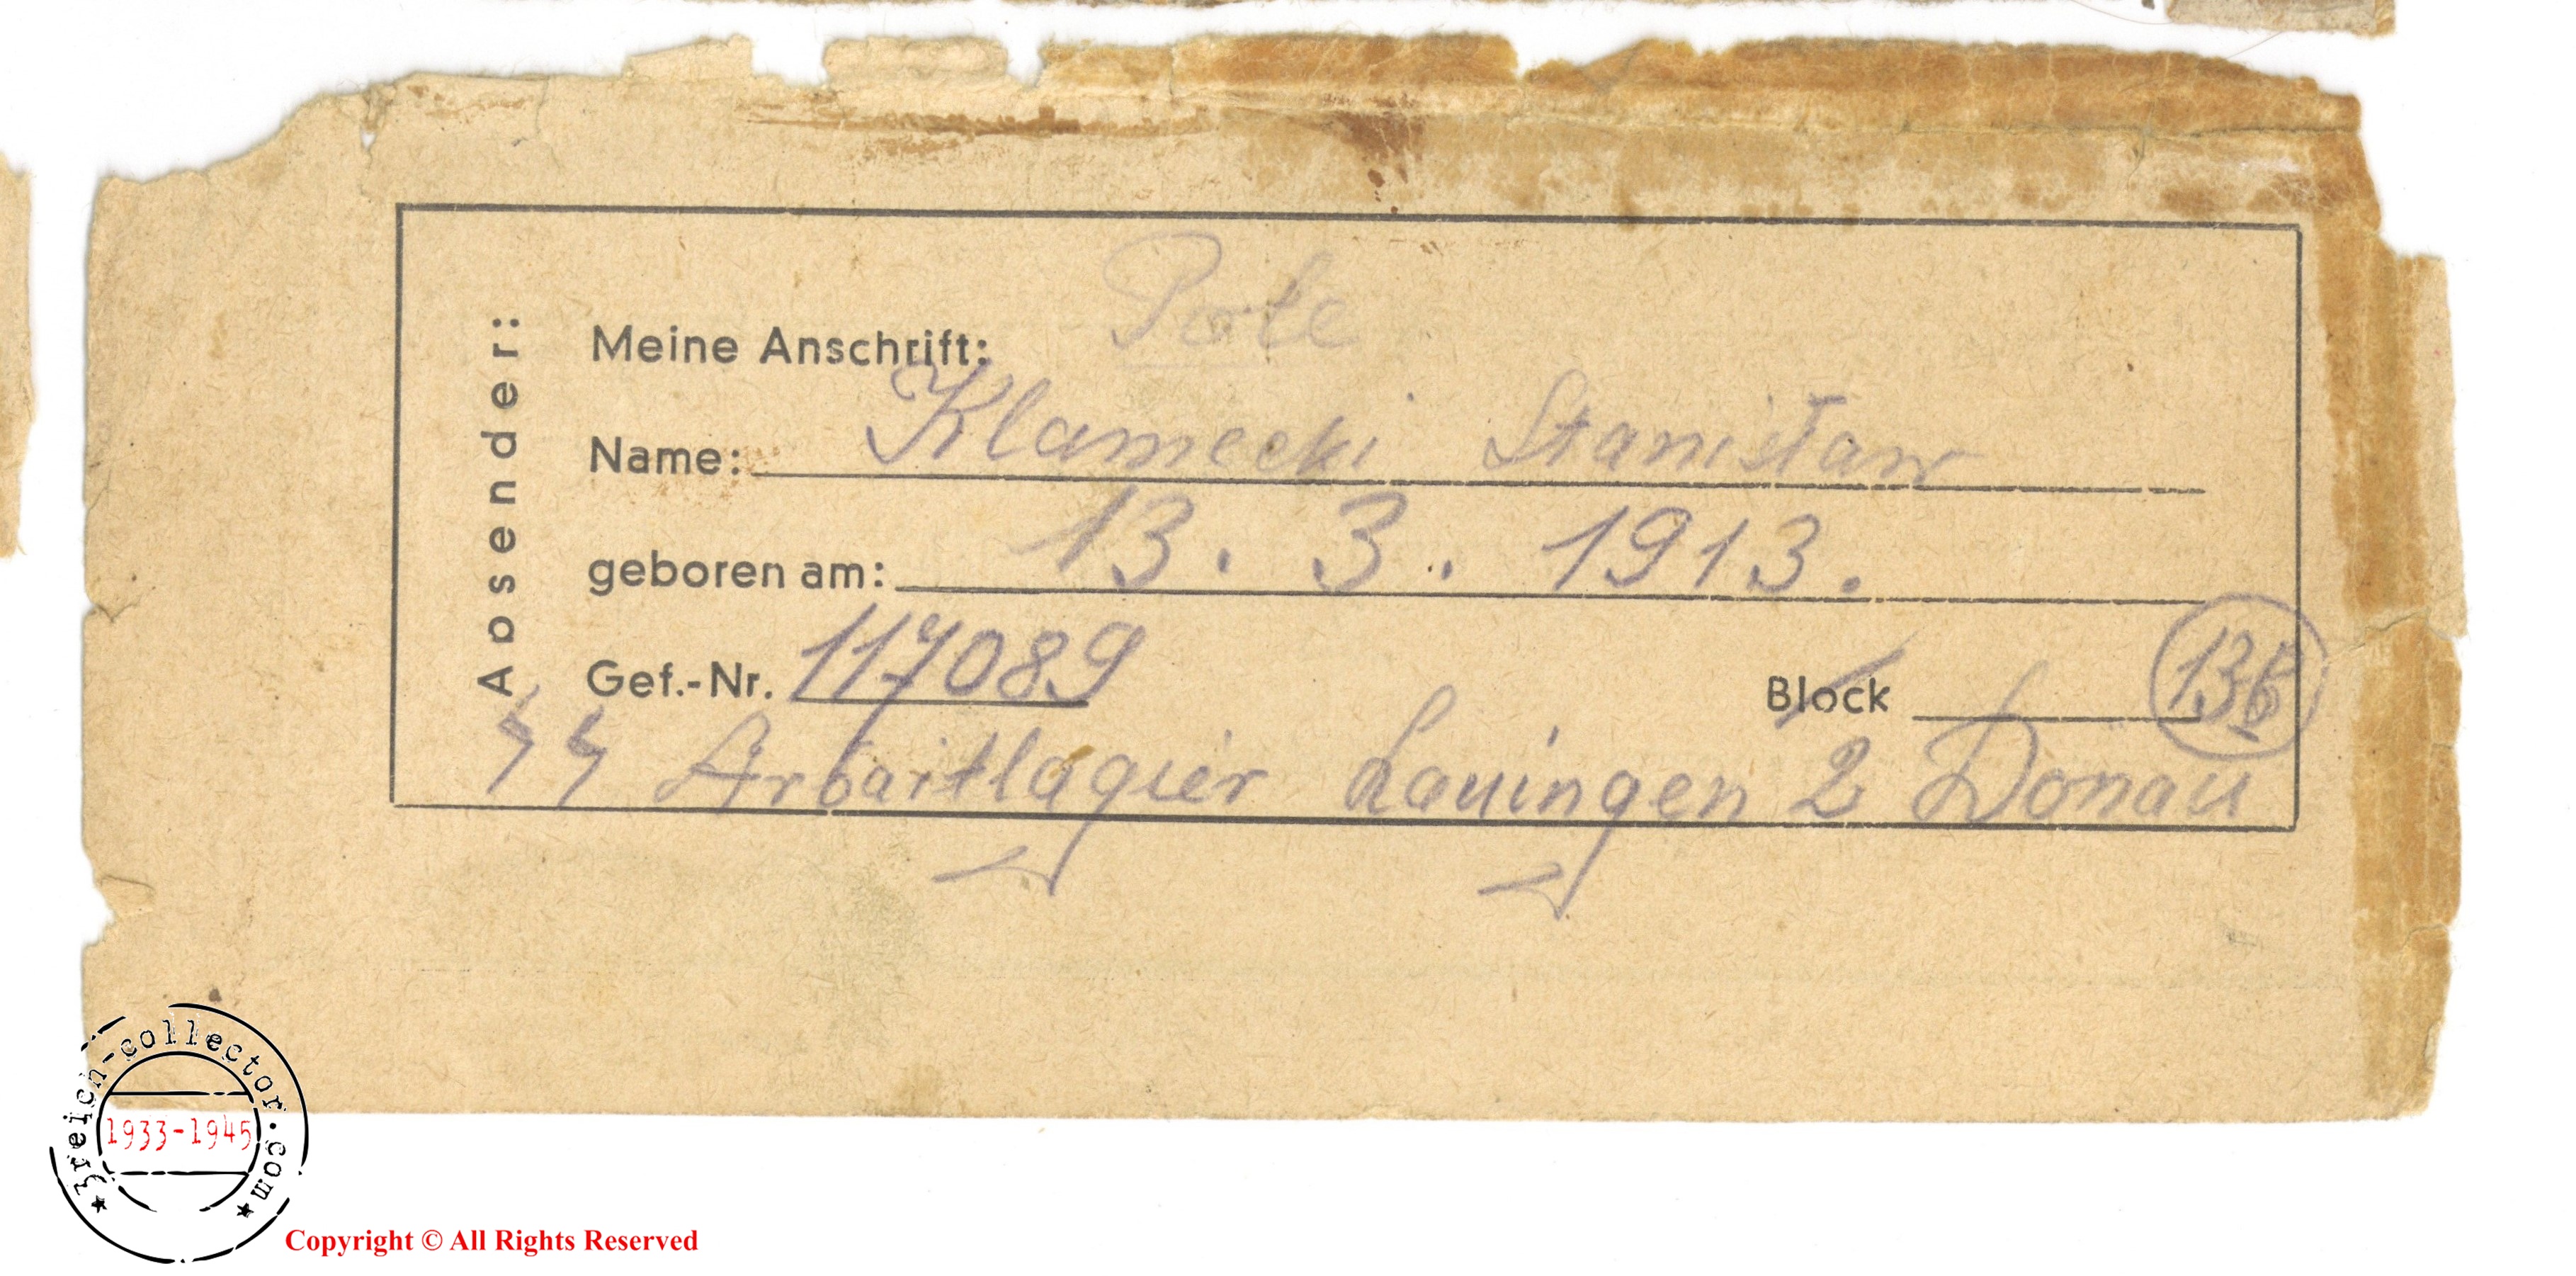 Absender:
Pole
Meine Anschrift:
Name: Klamecki Stanisław
geboren am: 13. 3. 1913.
Gef.-Nr. 117089 Block 136
SS Arbaitlagier Lauingen 2 Donau
3reich-collector.com
1933-1945
Copyright © All Rights Reserved